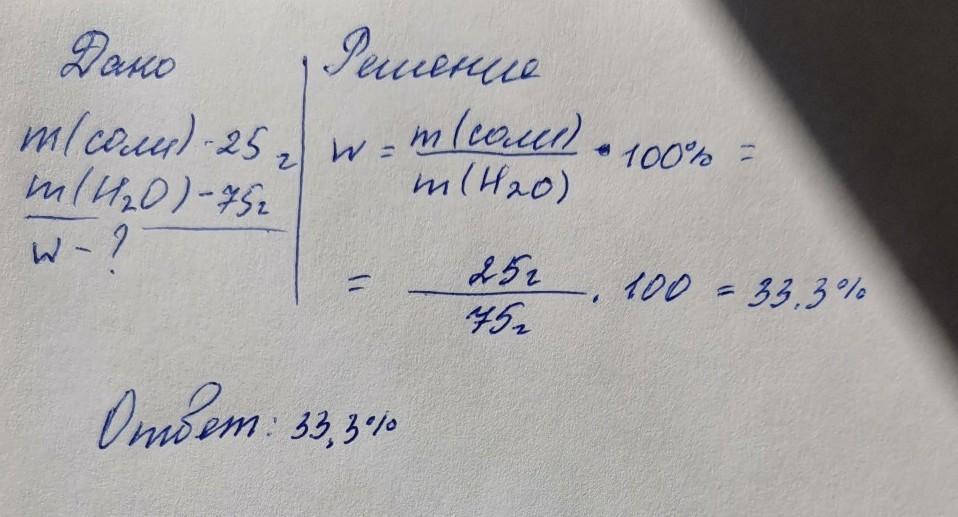 Дано
m(соли) - 25 г
m(H₂O) - 75г
w - ?
Решение
w = m(соли) / m(H₂O) • 100% =
= 25г / 75г · 100 = 33,3%
Ответ: 33,3%